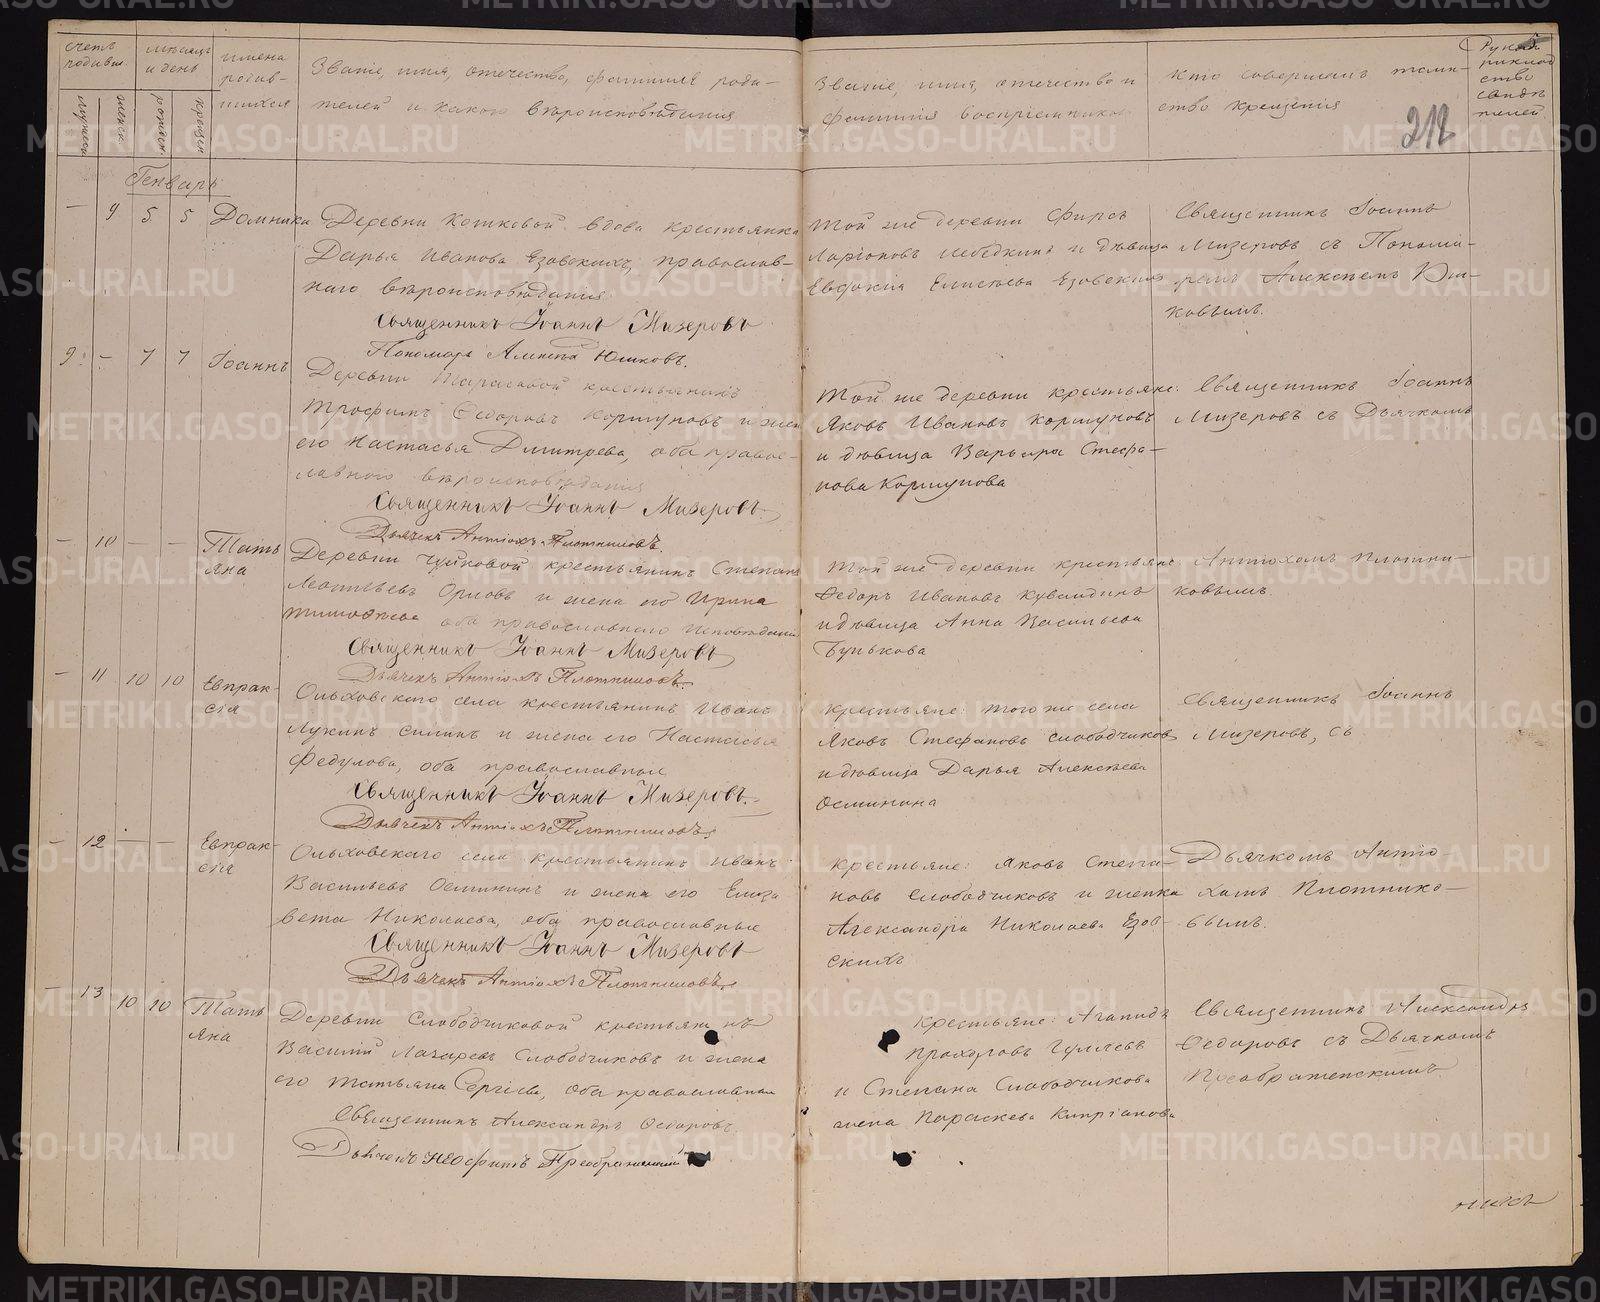 Счетъ родивш.
мѣсяцъ и день
имена родив-
шихся
Званіе, имя, отечество, фамилія роди-
телей и какого вѣроисповѣданія
Званіе, имя, отечество и
фамилія воспріемниковъ
Кто совершалъ таин-
ство крещенія
Руко
приклад
ство
свидѣ
телей
5
212
мужеск.
женск.
рожден.
крещен.
Генварь
— 9 5 5 Домника
Деревни Кошковой вдова крестьянка
Дарья Иванова Езовскихъ, православ-
наго вѣроисповѣданія.
Священникъ Іоаннъ Мизеровъ
Пономарь Алексѣй Юшковъ.
Той же деревни Фирсъ
Ларіоновъ Лебедкинъ и дѣвица
Евдокія Елисѣева Езовскихъ
Священникъ Іоаннъ
Мизеровъ съ Понома-
ремъ Алексѣемъ Юш-
ковымъ.
9 — 7 7 Іоаннъ
Деревни Тарасовой крестьянинъ
Трофимъ Ѳедоровъ Коршуновъ и жена
его Настасья Дмитрева, оба правос-
лавного вѣроисповѣданія
Священникъ Іоаннъ Мизеровъ.
Дьячекъ Антіохъ Плотниковъ.
Той же деревни крестьяне:
Яковъ Ивановъ Коршуновъ
и дѣвица Варвара Стефа-
нова Коршунова
Священникъ Іоаннъ
Мизеровъ съ Дьячкомъ
— 10 — — Тать
яна
Деревни Чуйковой крестьянинъ Степанъ
Леонтьевъ Орловъ и жена его Ирина
Тимофѣева оба православнаго исповѣданія
Священникъ Іоаннъ Мизеровъ
Дьячекъ Антіохъ Плотниковъ.
Той же деревни крестьяне:
Ѳедоръ Ивановъ Кувалдинъ
и дѣвица Анна Васильева
Бунькова
Антіохомъ Плотни-
ковымъ.
— 11 10 10 Евпрак-
сія
Ольховскаго села крестьянинъ Иванъ
Лукинъ Силинъ и жена его Настасья
Федулова, оба православныя
Священникъ Іоаннъ Мизеровъ.
Дьячекъ Антіохъ Плотниковъ.
Крестьяне: того же села
Яковъ Стефановъ Слободчиковъ
и дѣвица Дарья Алексѣева
Осминина
Священникъ Іоаннъ
Мизеровъ, съ
— 12 — — Евпрак-
сія
Ольховскаго села крестьянинъ Иванъ
Васильевъ Осмининъ и жена его Елиза
вета Николаева, оба православные
Священникъ Іоаннъ Мизеровъ
Дьячекъ Антіохъ Плотниковъ.
Крестьяне: Яковъ Степа-
новъ Слободчиковъ и женка
Александра Николаева Езов-
скихъ
Дьячкомъ Антіо
хомъ Плотнико-
вымъ.
— 13 10 10 Тать
яна
Деревни Слободчиковой крестьянинъ
Василій Лазаревъ Слободчиковъ и жена
его Татьяна Сергіева, оба православныя
Священникъ Александръ Ѳедоровъ.
Дьячекъ Неофитъ Преображенскій
Крестьяне: Агапидъ
Прохоровъ Гуляевъ
и Степана Слободчикова
жена Параскева Кипріанова
Священникъ Александръ
Ѳедоровъ съ Дьячкомъ
Преображенскимъ.
METRIKI.GASO-URAL.RU